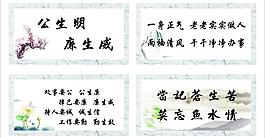 公生明
廉生威
一身正气 老老实实做人
两袖清风 干干净净办事
事要公 公生
己要廉 廉生威
待人要诚 诚生信
工作要勤 勤生
當記蒼生苦
莫忘魚水情